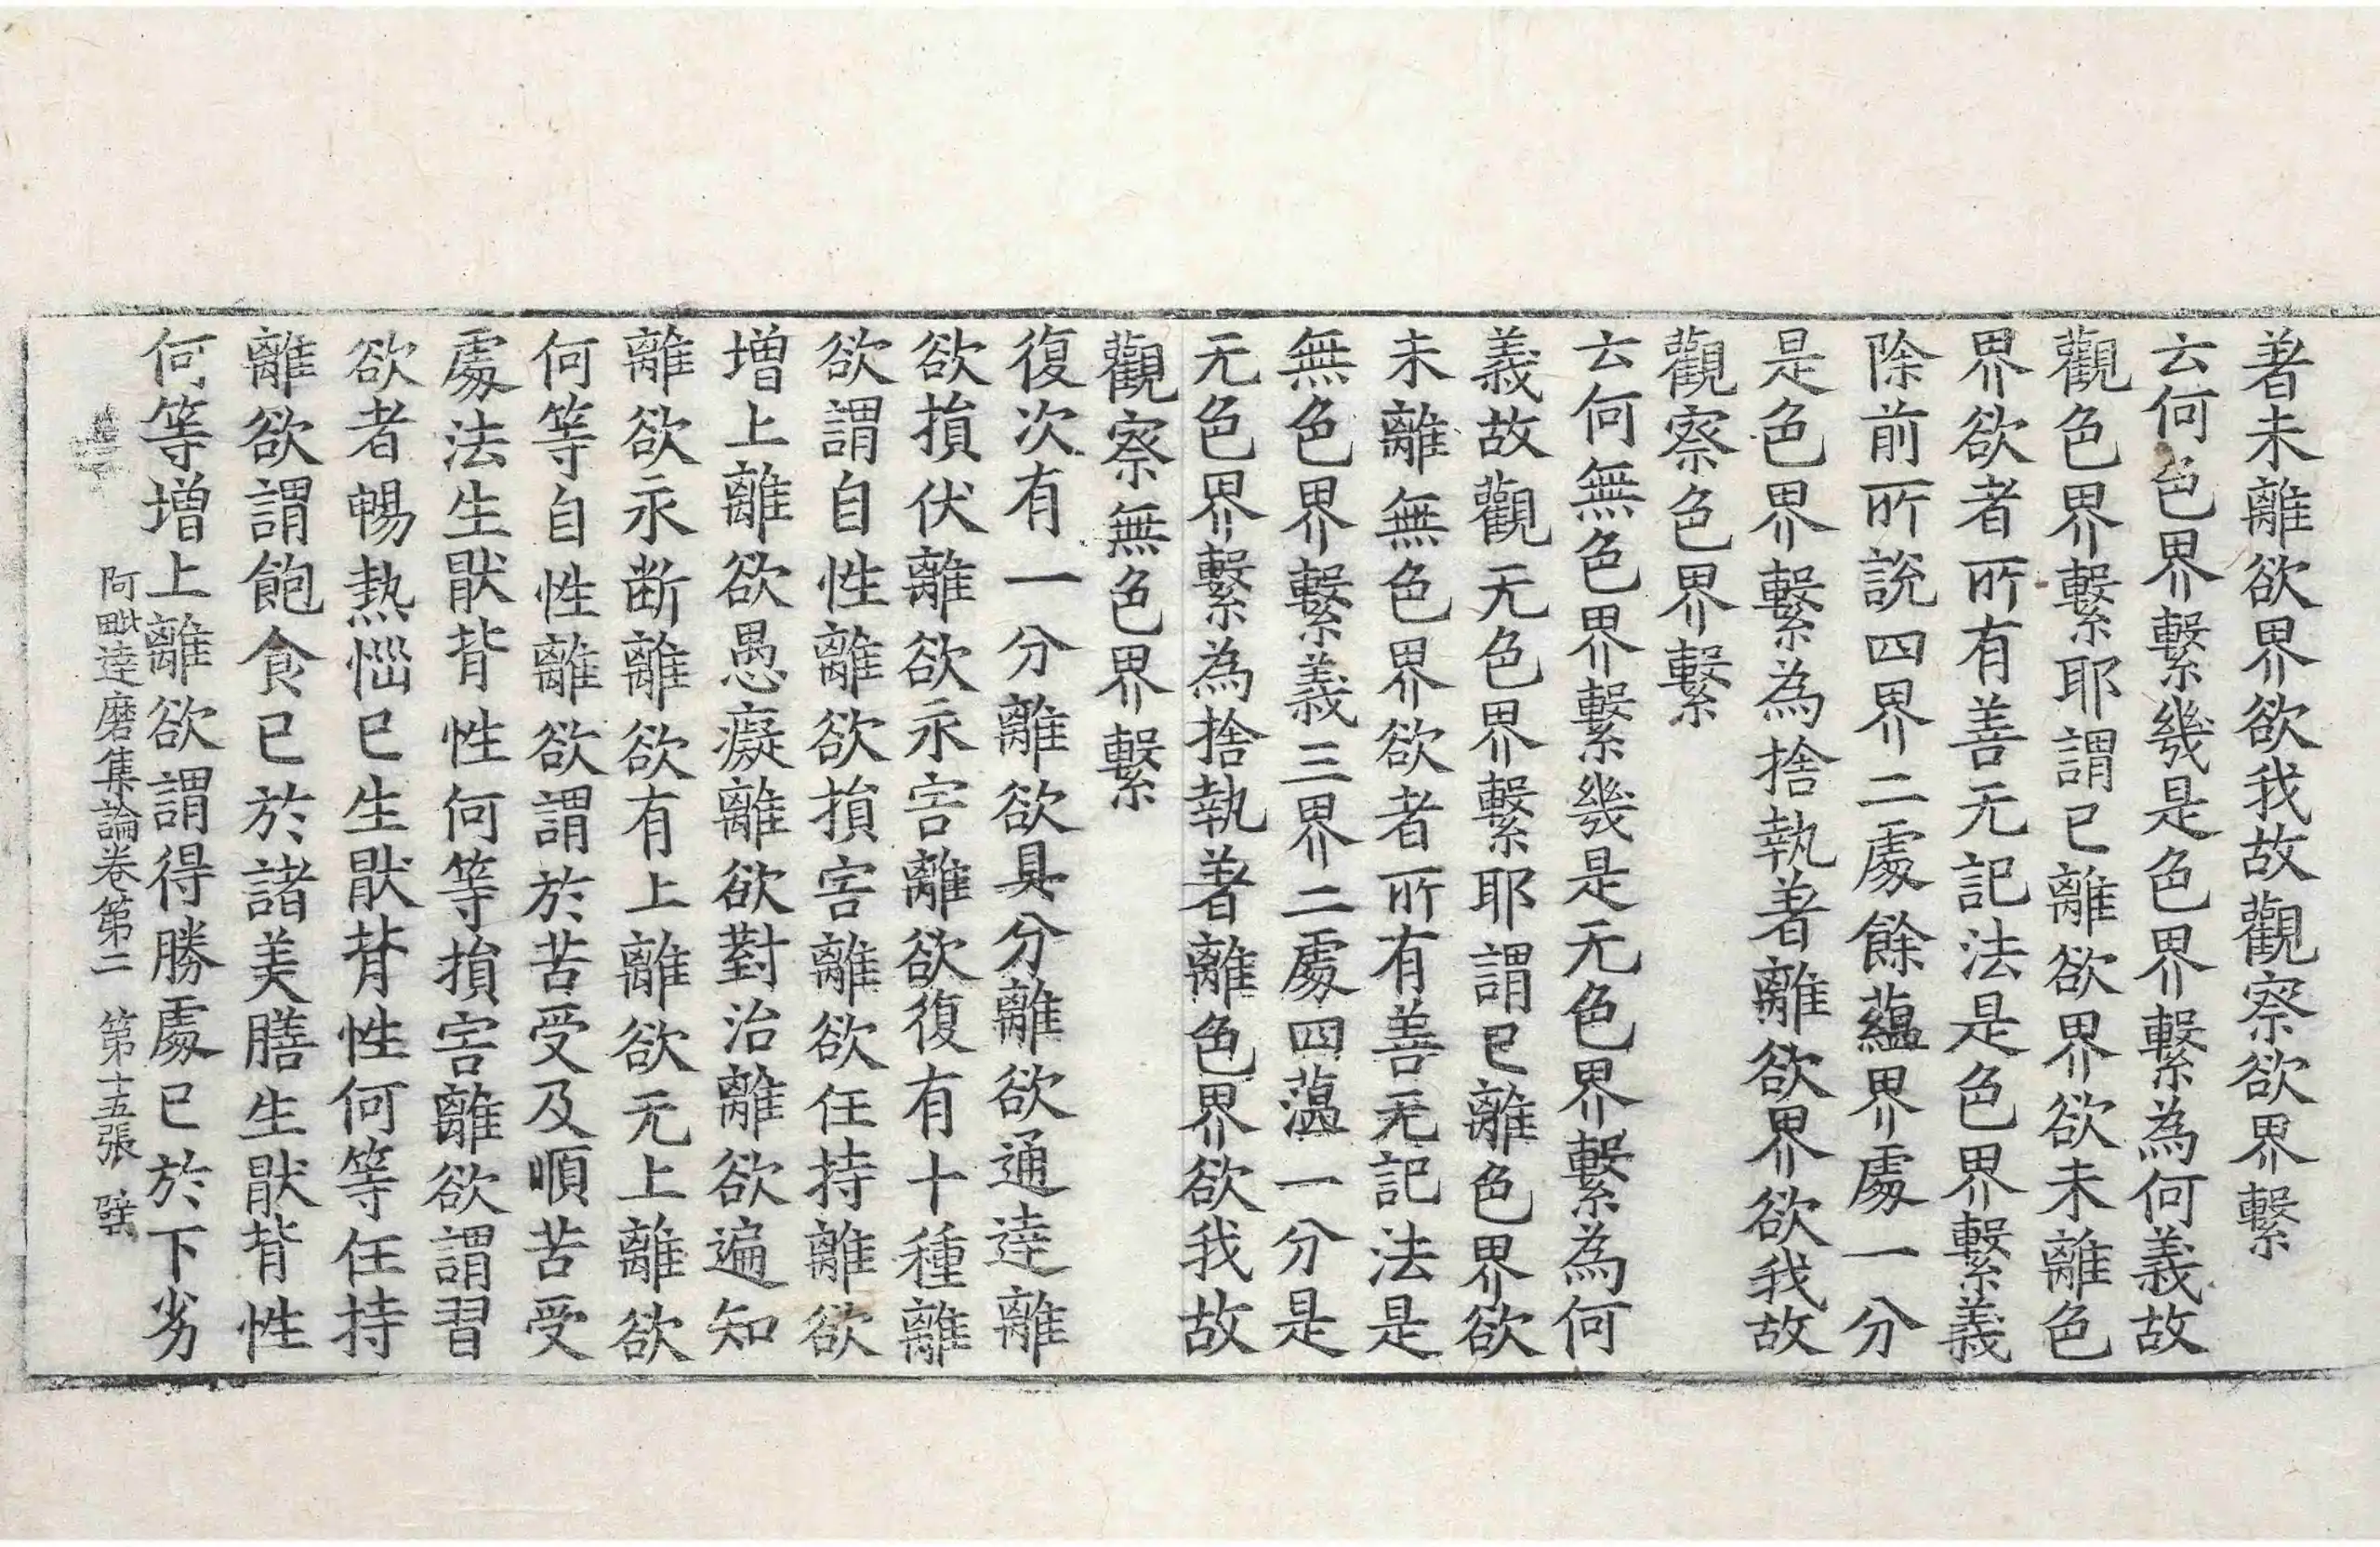 著未離欲界欲我故觀察欲界繫
云何色界繫幾是色界繫為何義故
觀色界繫耶謂已離欲界欲未離色
界欲者所有善无記法是色界繫義
除前所說四界二處餘蘊界處一分
是色界繫為捨執著離欲界欲我故
觀察色界繫
云何無色界繫幾是无色界繫為何
義故觀无色界繫耶謂已離色界欲
未離無色界欲者所有善无記法是
無色界繫義三界二處四蕰一分是
无色界繫為捨執著離色界欲我故
觀察無色界繫
復次有一分離欲具分離欲通逹離
欲損伏離欲永害離欲復有十種離
欲謂自性離欲損害離欲任持離欲
增上離欲愚癡離欲對治離欲遍知
離欲永断離欲有上離欲无上離欲
何等自性離欲謂於苦受及順苦受
處法生猒背性何等損害離欲謂習
欲者暢熱惱已生猒背性何等任持
離欲謂飽食已於諸美膳生猒背性
何等增上離欲謂得勝處已於下劣
阿毗逹磨集論卷第二 第十五張